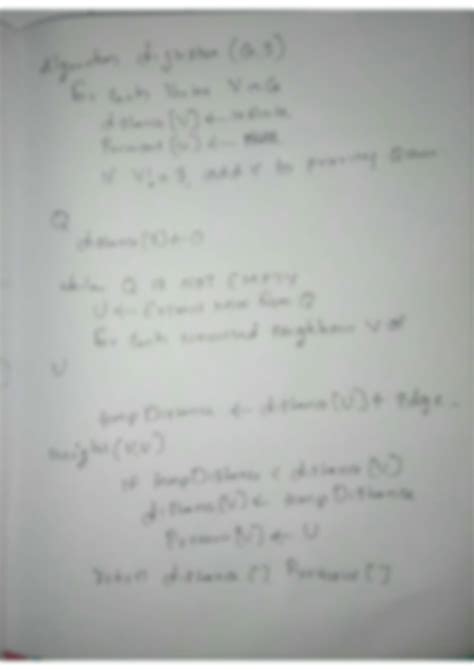 Algorithm dijkstra (G, S)
For each Vertex V in G
distance [V] ← infinite
Previous [V] ← NULL
if V != S, add V to priority Queue
Q
distance [S] ← 0
while Q IS NOT EMPTY
U ← Extract MIN from Q
For each unvisited neighbour V of
U
tempDistance ← distance [U] + edge_
weight (U,V)
if tempDistance < distance [V]
distance [V] ← tempDistance
Previous [V] ← U
return distance [] Previous []